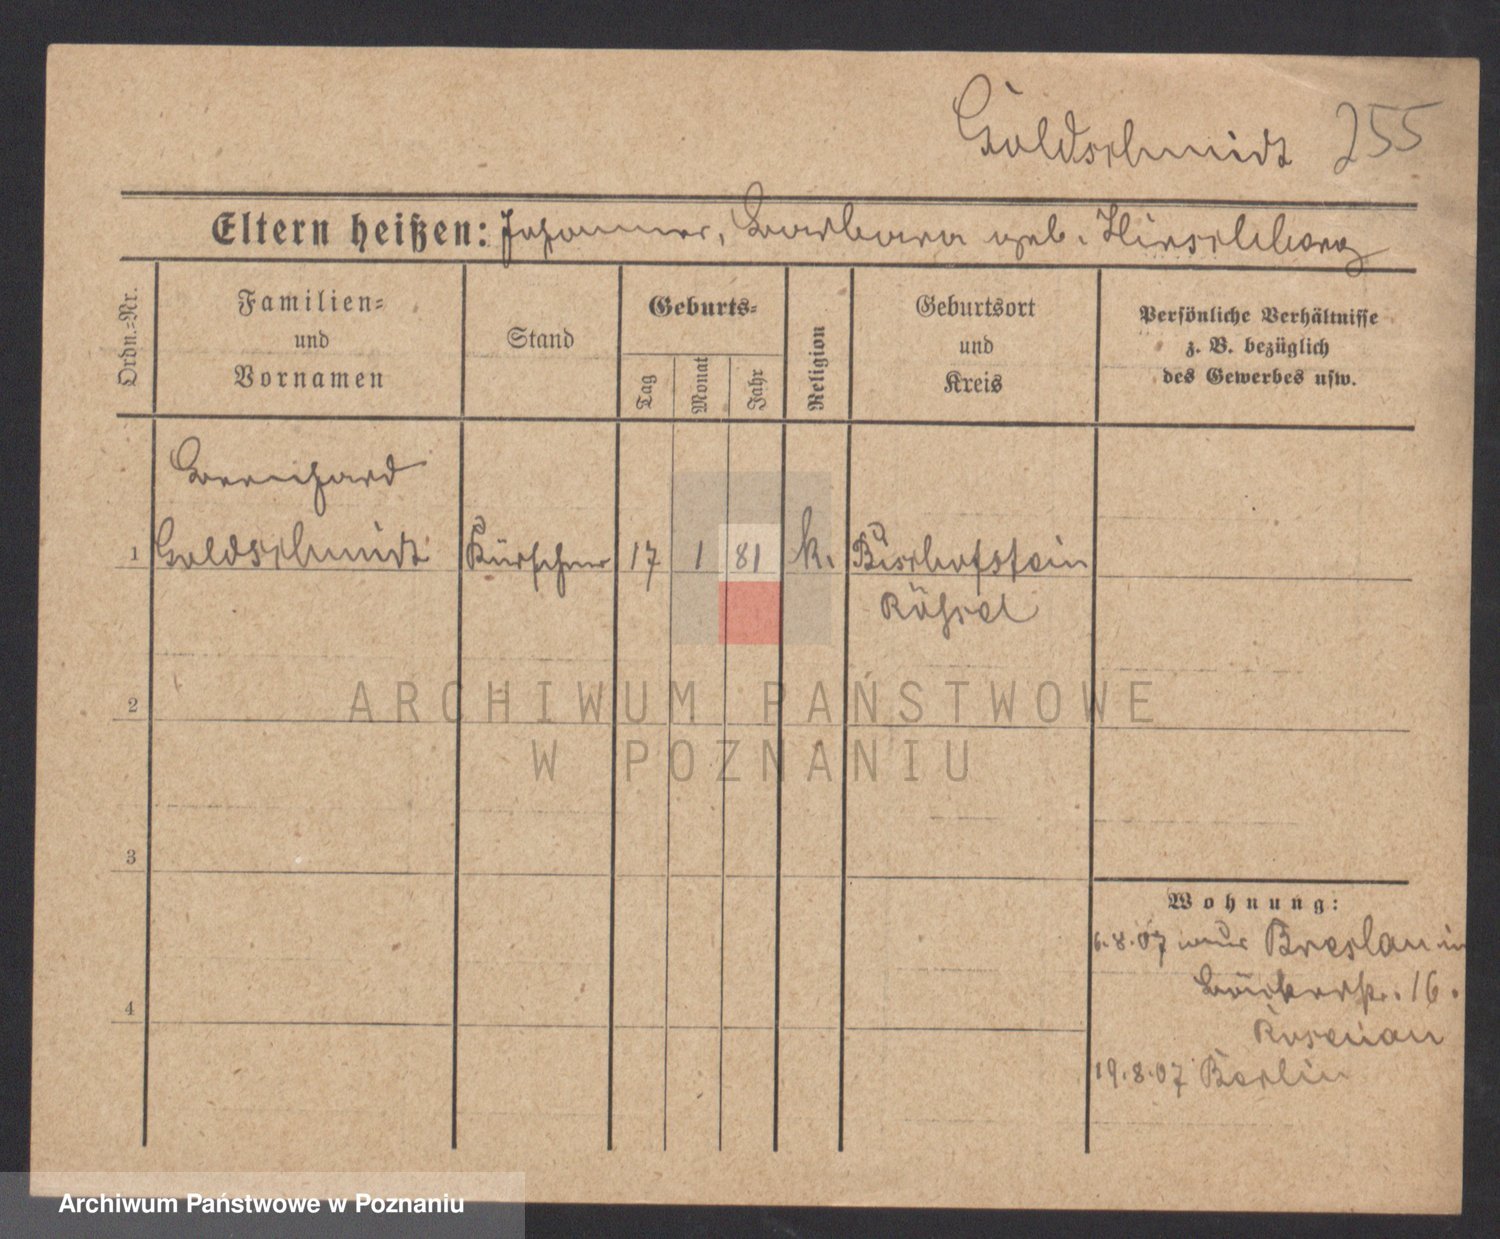 Goldschmidt 255
Eltern heißen: Johannes, Barbara geb. Hirschberg
Ordn.=Nr.
Familien=
und
Vornamen
Stand
Geburts=
Tag
Monat
Jahr
Religion
Geburtsort
und
Kreis
Persönliche Verhältnisse
z. B. bezüglich
des Gewerbes usw.
Bernhard
1 Goldschmidt Kürschner 17 1 81 k. Bischofstein
Rössel
2
ARCHIWUM PAŃSTWOWE
W POZNANIU
3
Wohnung:
6.8.07 aus Breslau in
Bäckerstr. 16.
4
Rosenau
19.8.07 Berlin
Archiwum Państwowe w Poznaniu